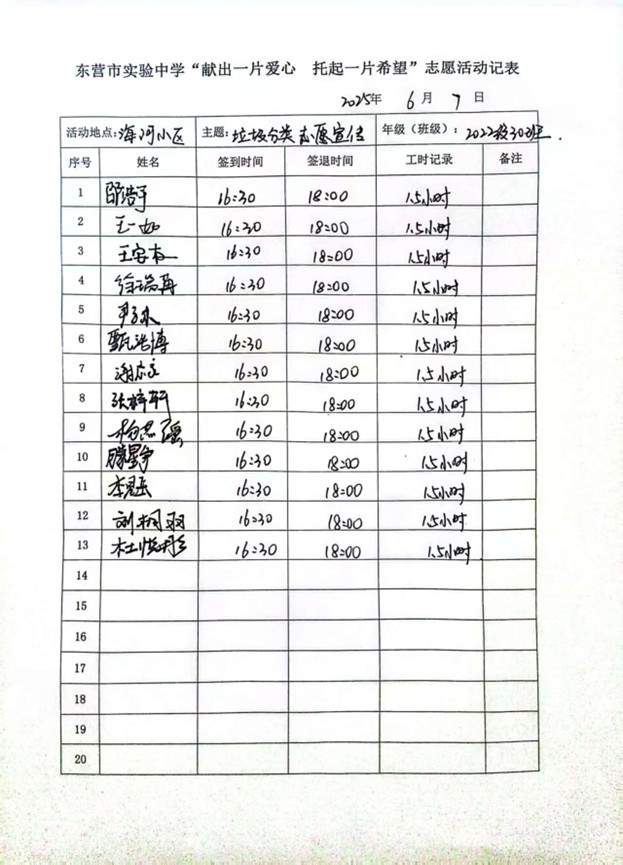 东营市实验中学“献出一片爱心 托起一片希望”志愿活动记表
2025年 6月 7日
活动地点:海河小区 主题:垃圾分类志愿宣传 年级(班级):2022级30班.
序号 姓名 签到时间 签退时间 工时记录 备注
1 邵浩宇 16:30 18:00 1.5小时
2 王一如 16:30 18:00 1.5小时
3 王家栋 16:30 18:00 1.5小时
4 徐瑞再 16:30 18:00 1.5小时
5 16:30 18:00 1.5小时
6 甄浩博 16:30 18:00 1.5小时
7 谢 16:30 18:00 1.5小时
8 张梓轩 16:30 18:00 1.5小时
9 杨志强 16:30 18:00 1.5小时
10 滕星宇 16:30 18:00 1.5小时
11 李 16:30 18:00 1.5小时
12 刘桐羽 16:30 18:00 1.5小时
13 杜悦彤 16:30 18:00 1.5小时
14
15
16
17
18
19
20